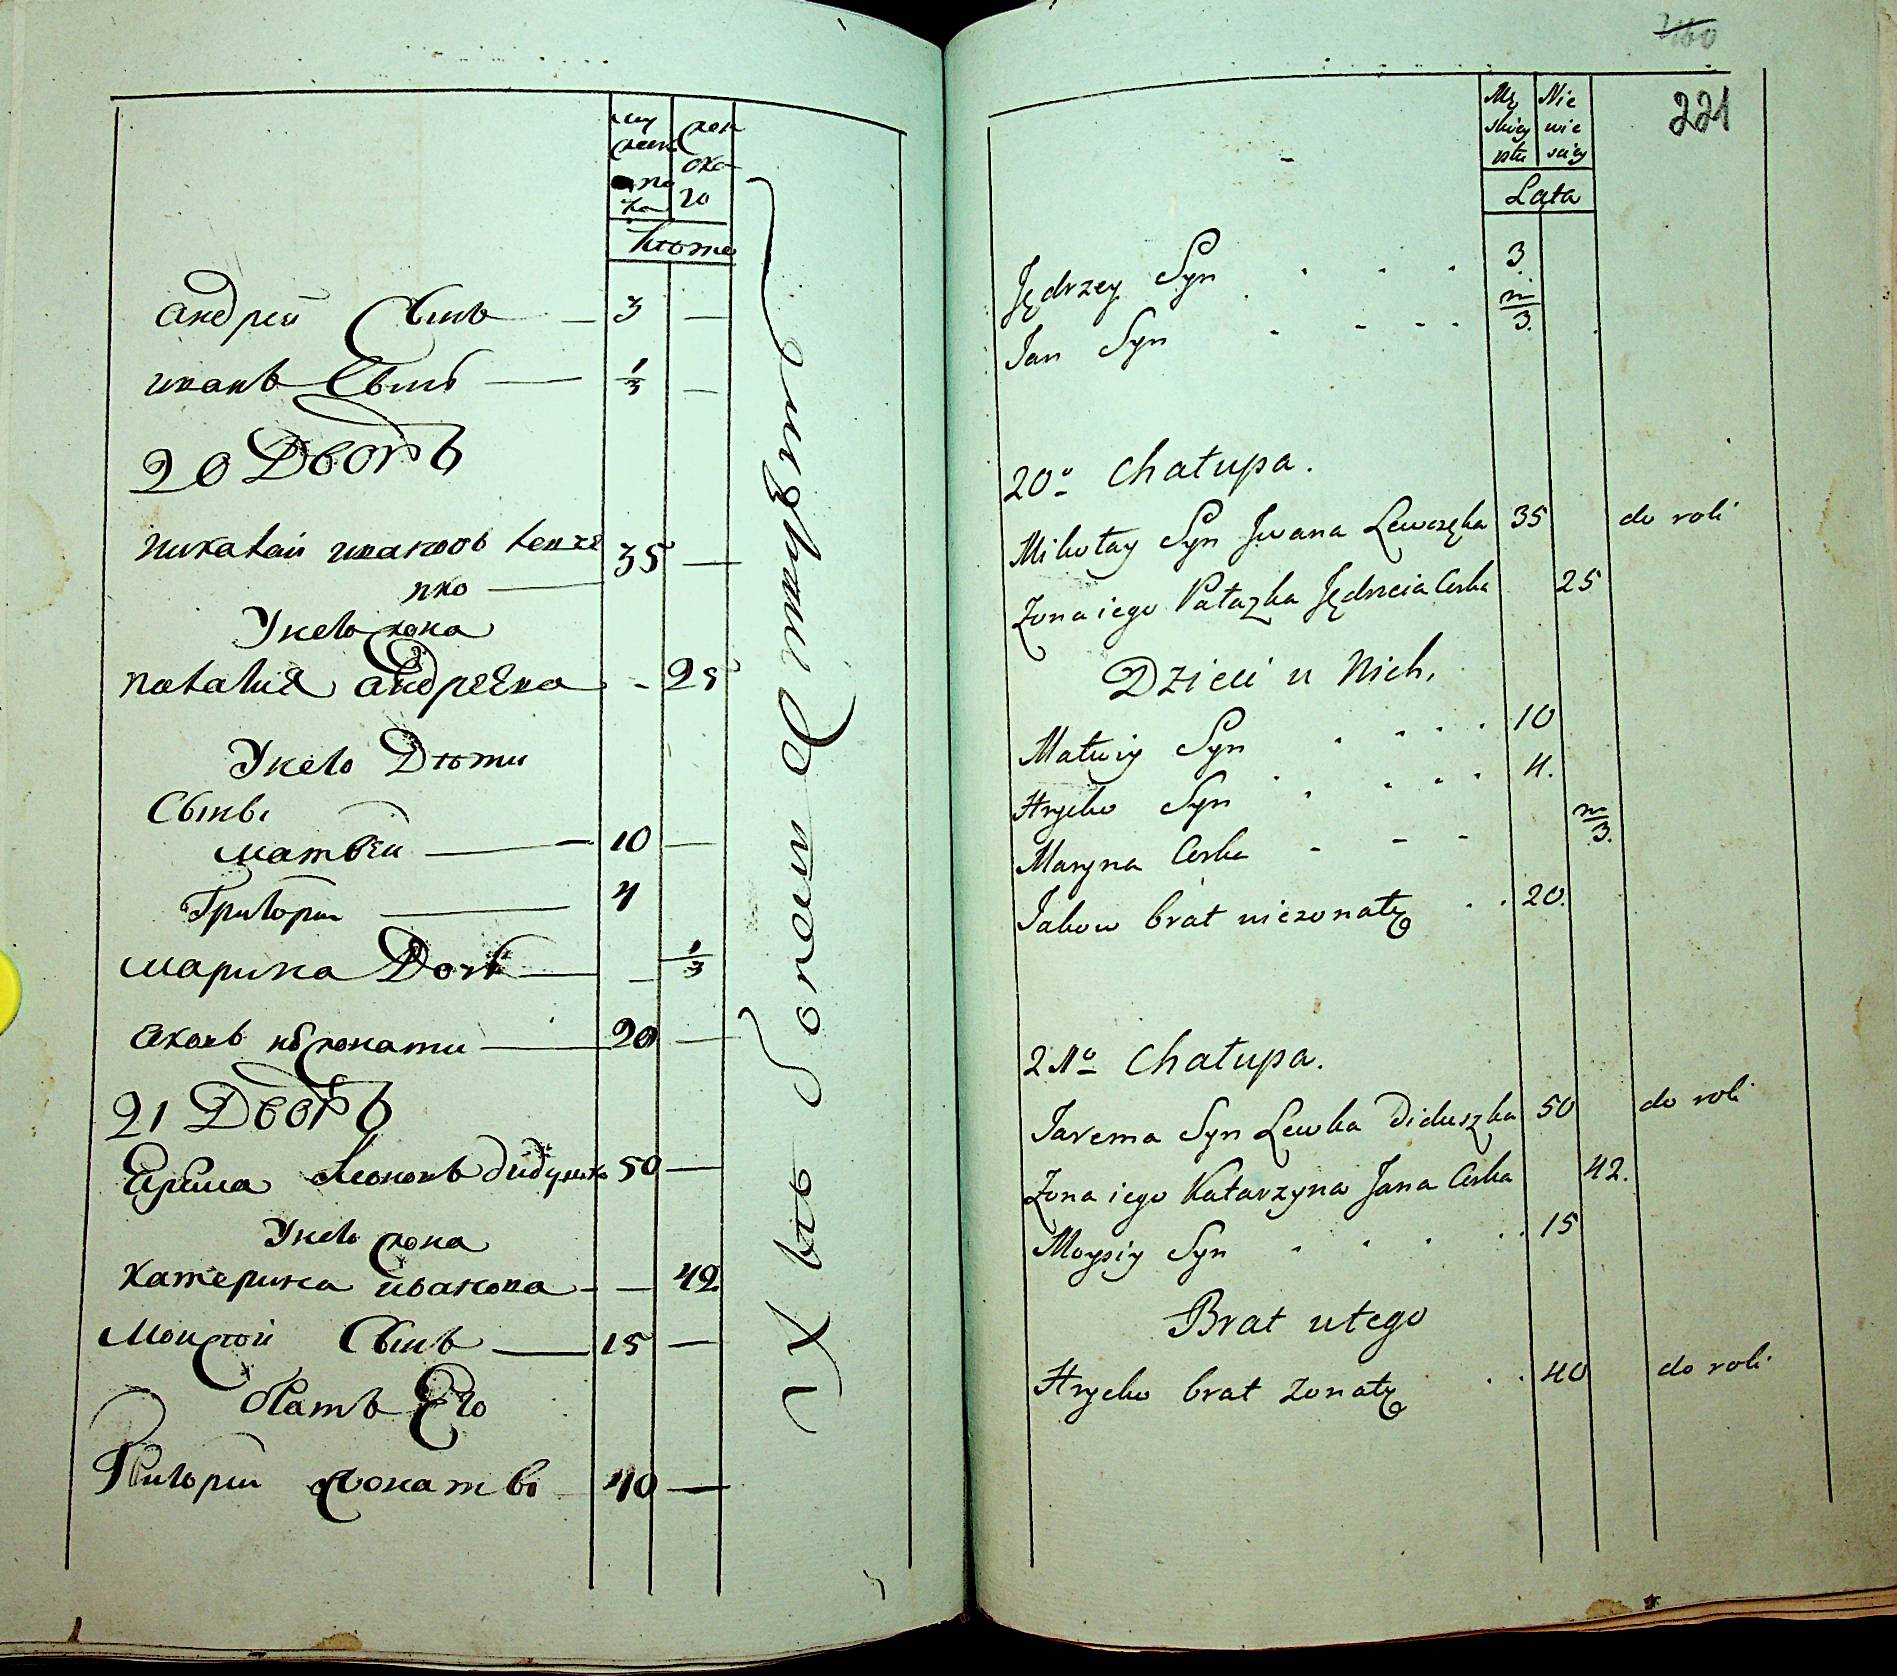 му
жеск
жен
ска
го
лѣта
Андрей Сынъ 3 —
Иванъ Сынъ 1/3 —
20 Дворъ
Николай Ивановъ Левче
нко 35 —
У него жона
Наталия Андреева - 25
У него Дѣти
Сыны
Матвѣй 10 —
Григорий 4
Марина Дочь — 1/3
Яковъ не жонати 20 —
21 Дворъ
Ярема Леоновъ Дидушко 50 —
У него жона
Катерина Иванова — 42
Моисей Сынъ 15 —
Братъ Его
Григорий жонаты 40 —
221
Mę Nie
skiey wie
płci sciey
Lata
Jędrzey Syn 3
Jan Syn m/3.
20o Chałupa.
Mikołay Syn Jwana Lewczęka 35 do roli
Zona iego Pałazka Jędrzeia Corka 25
Dzieci u Nich,
Matwiy Syn 10
Hryćko Syn 4.
Maryna Corka m/3.
Jakow brat niezonaty 20.
21o Chałupa.
Jarema Syn Lewka Diduszka 50 do roli
Zona iego Katarzyna Jana Corka 42.
Moysiy Syn 15
Brat utego
Hryćko brat Zonaty 40 do roli